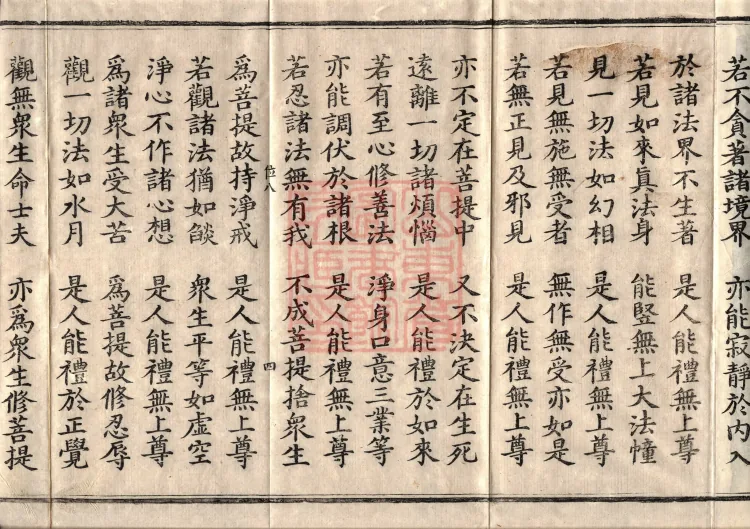 若不貪著諸境界　亦能寂靜於內入
於諸法界不生著　是人能禮無上尊
若見如來真法身　能竪無上大法幢
見一切法如幻相　是人能禮無上尊
若見無施無受者　無作無受亦如是
若無正見及邪見　是人能禮無上尊
亦不定在菩提中　又不決定在生死
遠離一切諸煩惱　是人能禮於如來
若有至心修善法　淨身口意三業等
亦能調伏於諸根　是人能禮無上尊
若忍諸法無有我　不成菩提捨衆生
位八　四
為菩提故持淨戒　是人能禮無上尊
若觀諸法猶如燄　衆生平等如虛空
淨心不作諸心想　是人能禮無上尊
為諸衆生受大苦　為菩提故修忍辱
觀一切法如水月　是人能禮於正覺
觀無衆生命士夫　亦為衆生修菩提